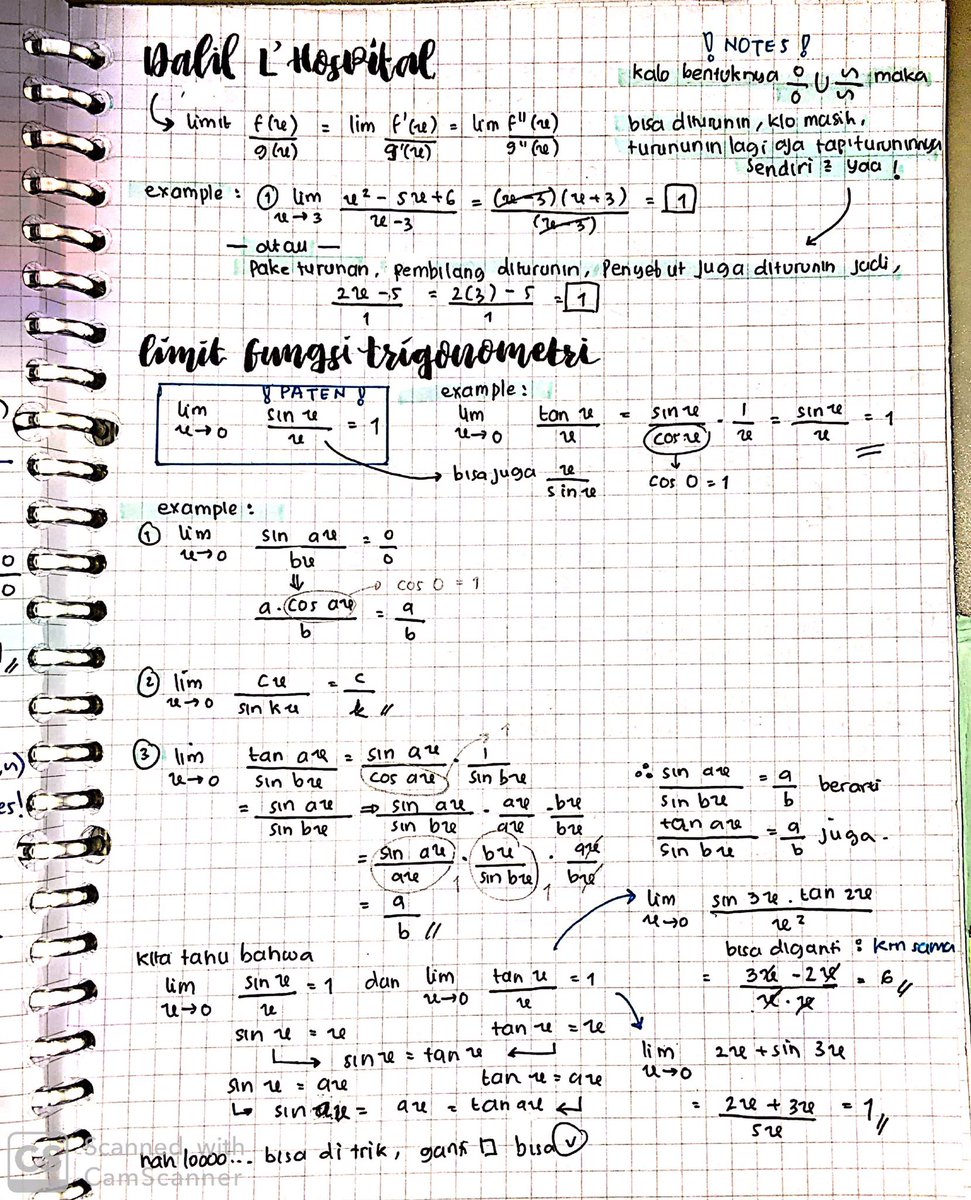 Dalil L'Hospital
! NOTES !
kalo bentuknya 0/0 U ~/~ maka
bisa diturunin, klo masih,
turununin lagi aja tapi turuninnya
sendiri² yaa !
↳ limit f(x)/g(x) = lim f'(x)/g'(x) = lim f''(x)/g''(x)
example : ① lim x→3 x² - 5x + 6 / x - 3 = (x-3)(x+3) / (x-3) = 1
— atau —
Pake turunan, pembilang diturunin, Penyebut juga diturunin jadi,
2x - 5 / 1 = 2(3) - 5 / 1 = 1
limit fungsi trigonometri
! PATEN !
lim x→0 sin x / x = 1
→ bisa juga x / sin x
example :
lim x→0 tan x / x = sin x / cos x · 1 / x = sin x / x = 1
cos 0 = 1
example :
① lim x→0 sin ax / bx = 0/0
⇓
a · cos ax / b = a/b
→ cos 0 = 1
② lim x→0 cx / sin kx = c/k //
③ lim x→0 tan ax / sin bx = sin ax / cos ax · 1 / sin bx
1
= sin ax / sin bx ⇒ sin ax / sin bx · ax / ax · bx / bx
= sin ax / ax · bx / sin bx · ax / bx
1 1
= a/b //
∴ sin ax / sin bx = a/b berarti
tan ax / sin bx = a/b juga.
kita tahu bahwa
lim x→0 sin x / x = 1 dan lim x→0 tan x / x = 1
sin x = x tan x = x
↳ sin x = tan x ↲
sin x = ax tan x = ax
↳ sin ax = ax = tan ax ↲
nah loooo... bisa di trik, ganti □ bisa ✓
lim x→0 sin 3x · tan 2x / x²
bisa diganti : krn sama
= 3x - 2x / x · x = 6 //
lim x→0 2x + sin 3x
= 2x + 3x / 5x = 1 //
0/0
//
es!
CS Scanned with
CamScanner